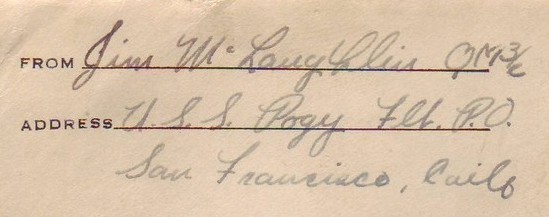 FROM Jim McLaughlin QM3/c
ADDRESS U.S.S. Pogy Flt. P.O.
San Francisco, Calif